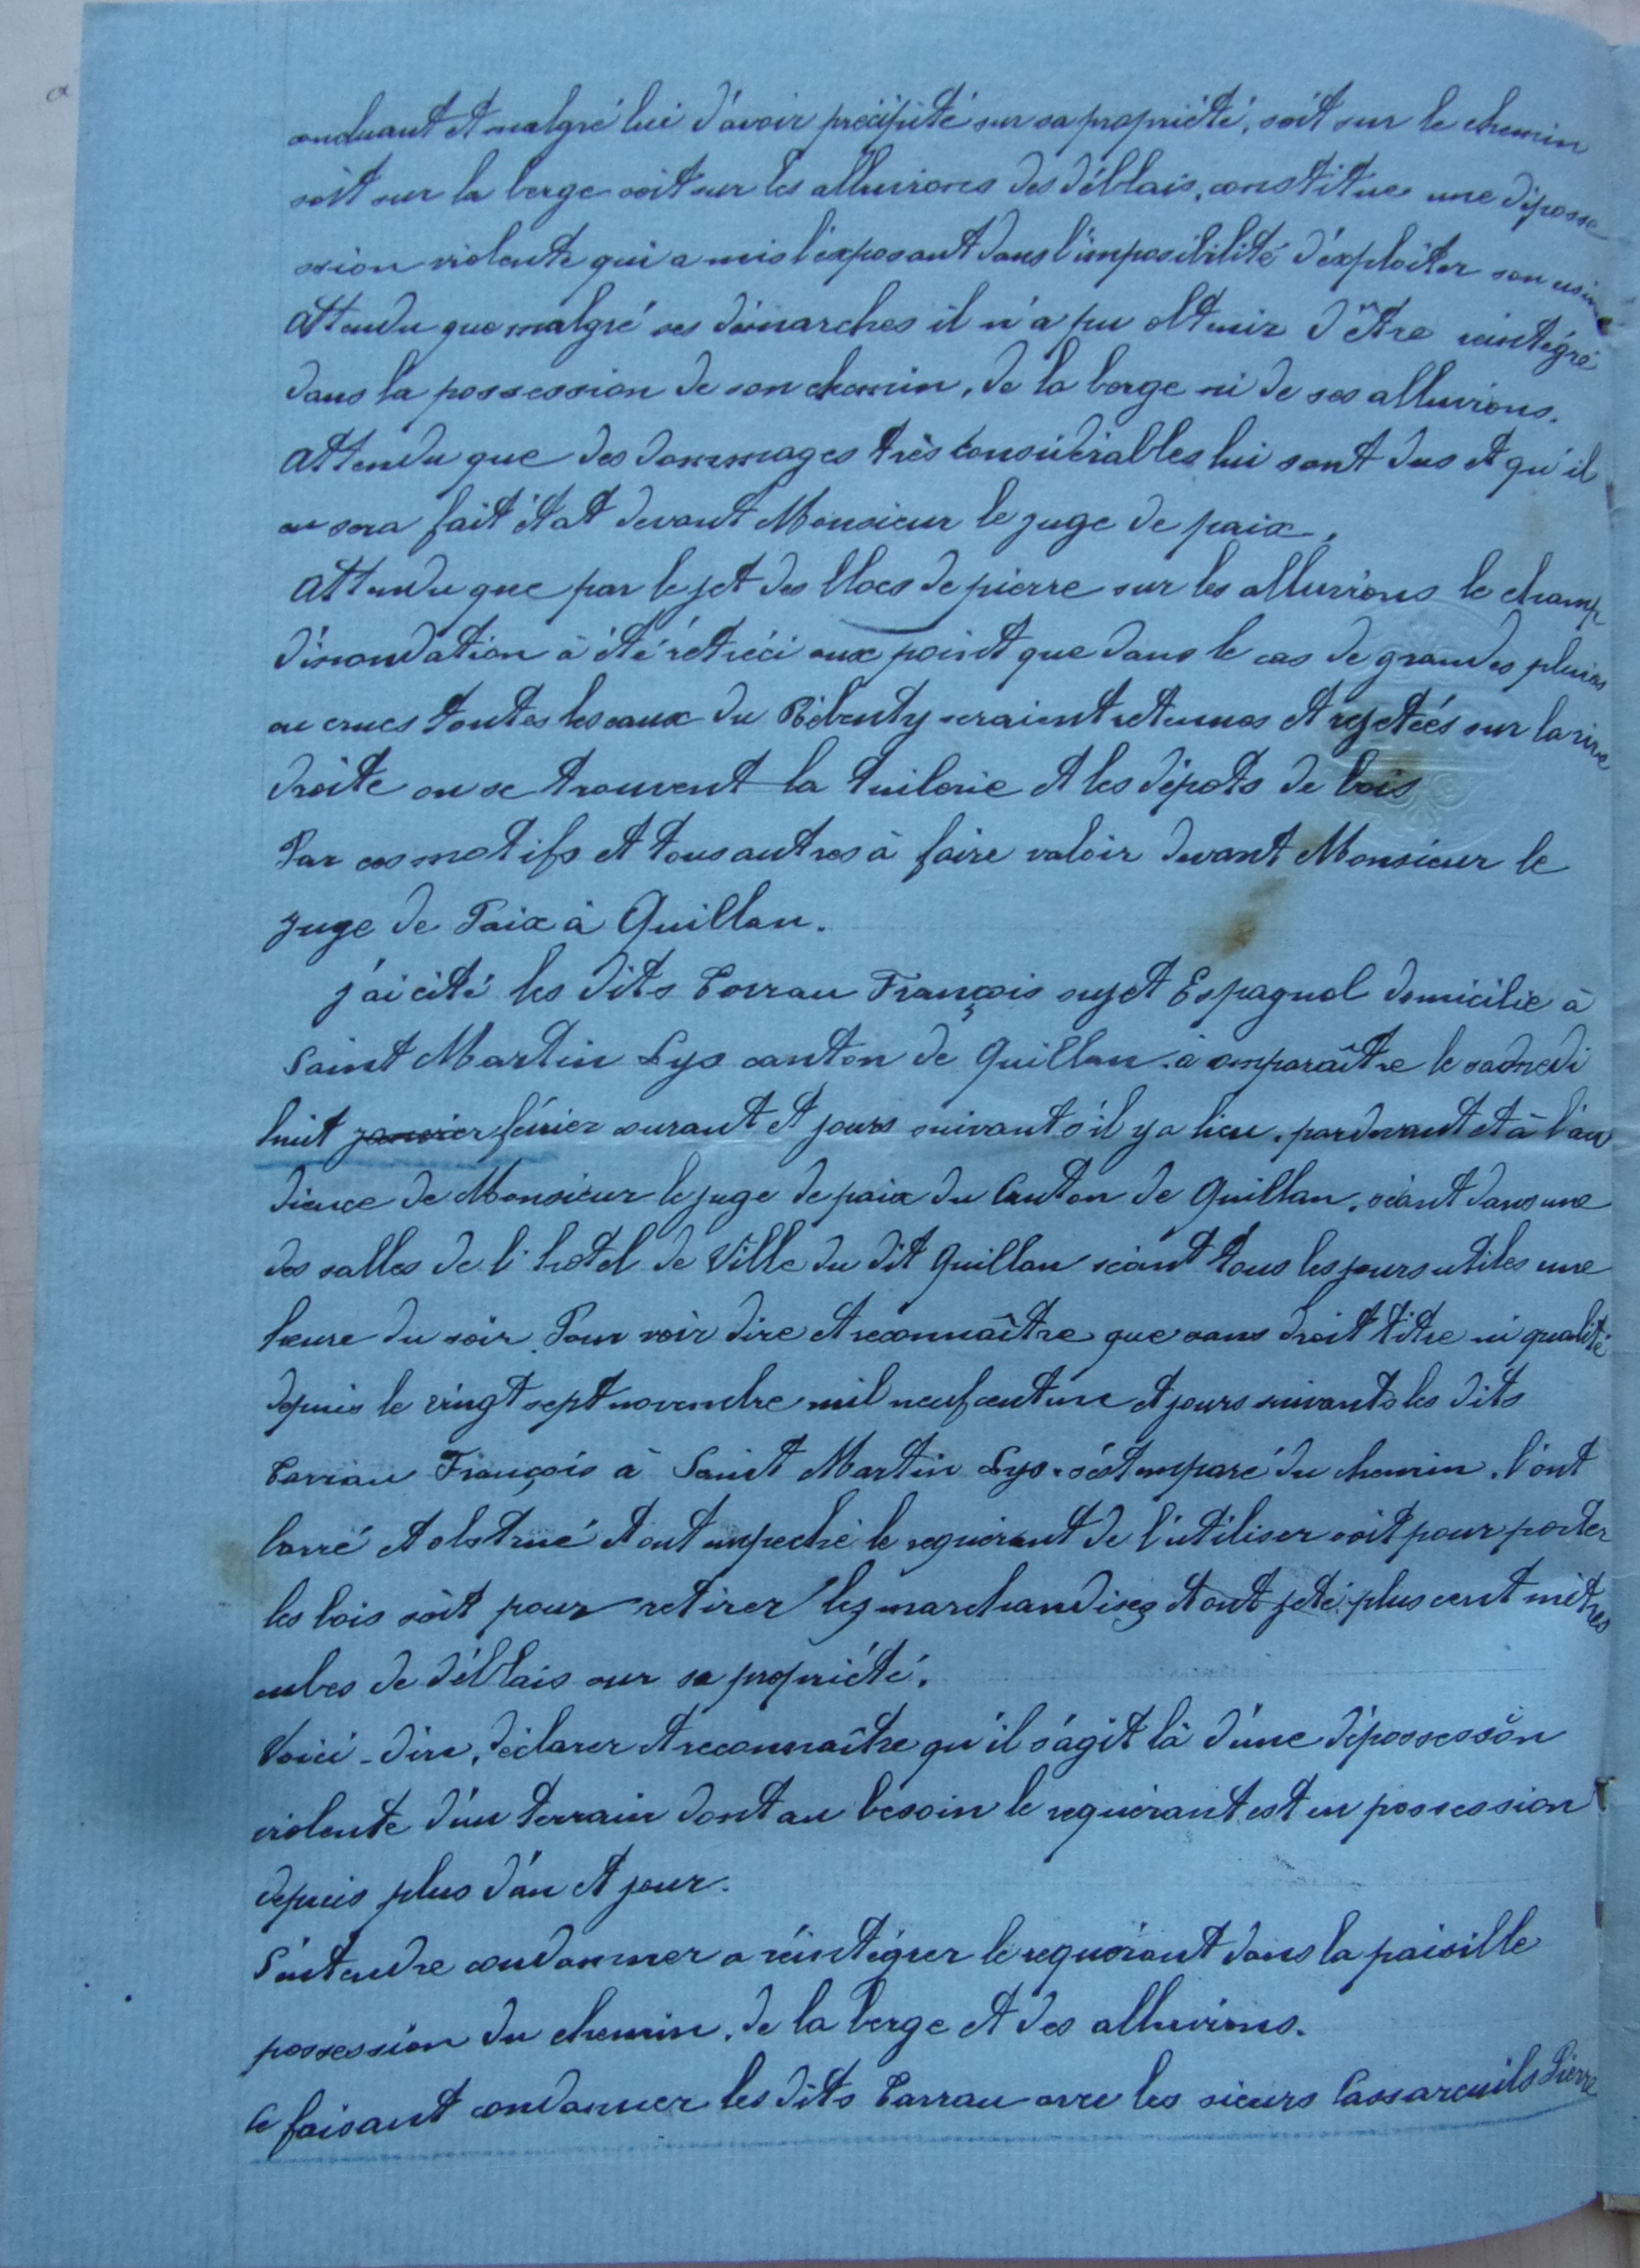 conduant et malgré lui d'avoir précipité sur sa propriété, soit sur le chemin
soit sur la berge soit sur les alluvions des déblais, constitue une déposse
ssion violente qui a mis l'exposant dans l'imposibilité d'exploiter son usine
Attendu que malgré ses démarches il n'a pu obtenir d'être reintégré
dans la possession de son chemin, de la berge ni de ses alluvions.
Attendu que des dommages très considérables lui sont dus et qu'il
en sera fait état devant Monsieur le juge de paix.
Attendu que par le jet des blocs de pierre sur les alluvions le champ
d'inondation à été rétréci aux point que dans le cas de grandes pluies
ou crues toutes les eaux du Rébenty seraient retenues et rejetées sur la rive
droite ou se trouvent la tuilerie et les dépots de bois
Par ces motifs et tous autres à faire valoir devant Monsieur le
juge de Paix à Quillan.
j'ai cité les dits Tarrau François sujet Espagnol domicilié à
Saint Martin Lys canton de Quillan. à comparaître le samedi
huit janvier février courant et jours suivant s'il y a lieu, pardevant et à l'au
dience de Monsieur le juge de paix du Canton de Quillan, séant dans une
des salles de l'hotel de Ville du dit Quillan séant tous les jours utiles une
heure du soir. Pour voir dire et reconnaître que sans droit titre ni qualité
depuis le vingt sept novembre mil neuf cent un et jours suivants les dits
Tarrau François à Saint Martin Lys. s'est emparé du chemin, l'ont
barré et obstrué et ont empeché le requérant de l'utiliser soit pour porter
les bois soit pour retirer les marchandises et ont jeté plus cent mètres
cubes de déblais sur sa propriété.
Voici dire, déclarer et reconnaître qu'il s'agit là d'une dépossession
violente d'un terrain dont au besoin le requérant est en possession
depuis plus d'an et jour.
S'entendre condamner a réintégrer le requérant dans la paisible
possession du chemin, de la berge et des alluvions.
Ce faisant condamner les dits Tarrau avec les sieurs Cassareuils Pierre